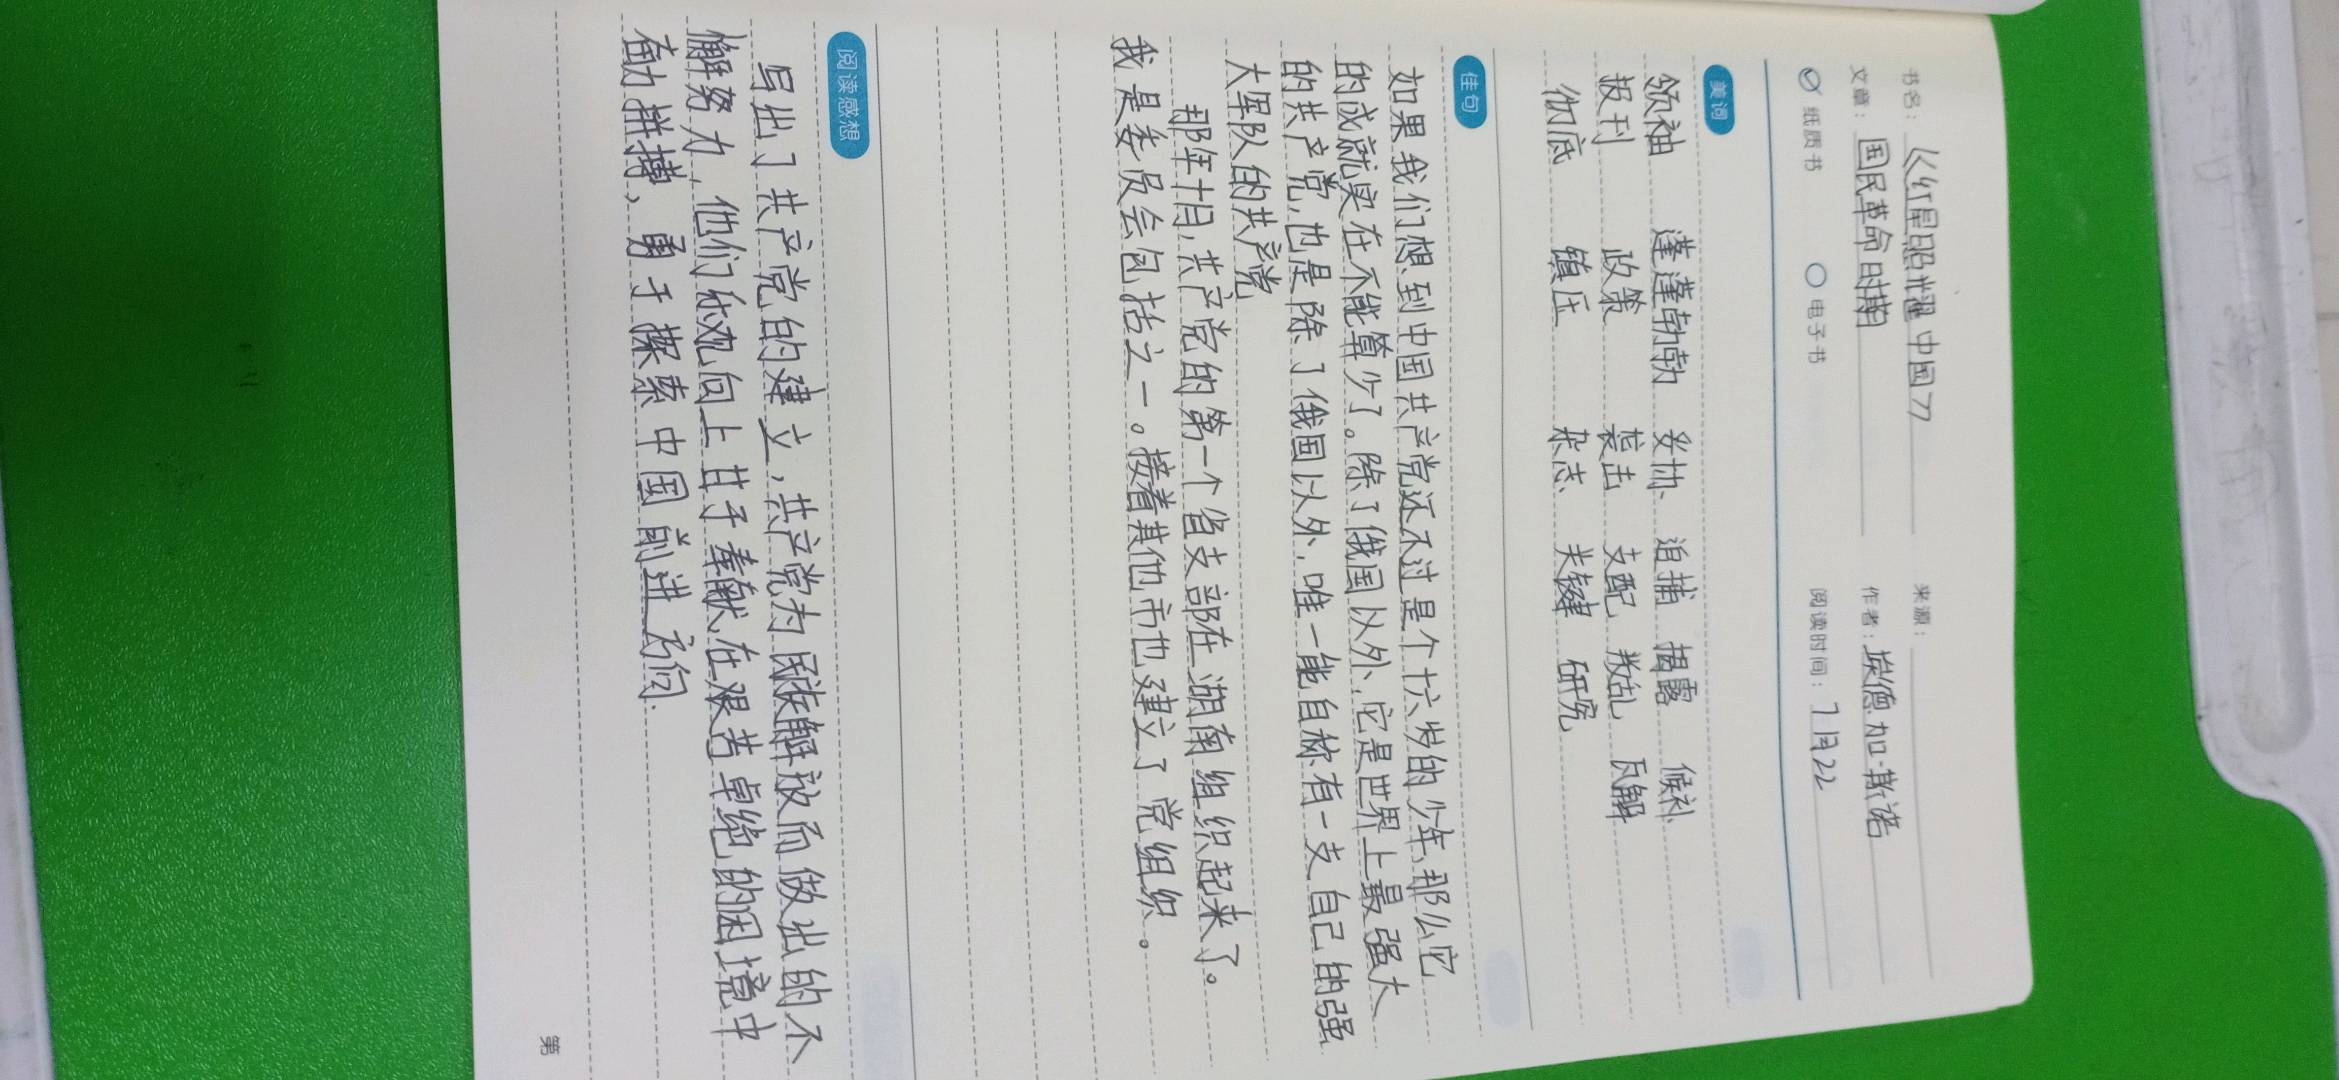 书名：《红星照耀中国》 来源：
文章：国民革命时期 作者：埃德加·斯诺
纸质书 电子书 阅读时间：7月22
美词
领袖 蓬蓬勃勃 妥协 追捕 揭露 候补
报刊 政策 袭击 支配 叛乱 瓦解
彻底 镇压 杂志 关键 研究
佳句
如果我们想到中国共产党还不过是个十六岁的少年，那么它
的成就实在不能算少了。除了俄国以外，它是世界上最强大
的共产党，也是除了俄国以外，唯一能自称有一支自己的强
大军队的共产党
那年十月，共产党的第一个省支部在湖南组织起来了。
我是委员会包括之一。接着其他市也建立了党组织。
阅读感想
写出了共产党的建立，共产党为民族解放而做出的不
懈努力，他们积观向上甘于奉献，在艰苦卓绝的困境中
奋力拼搏、勇于探索中国前进方向.
第